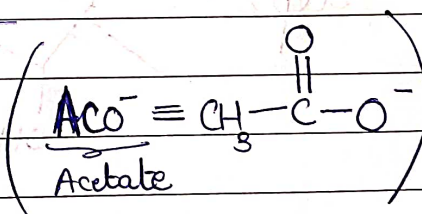 O
AcO⁻ ≡ CH₃–C–O⁻
Acetate